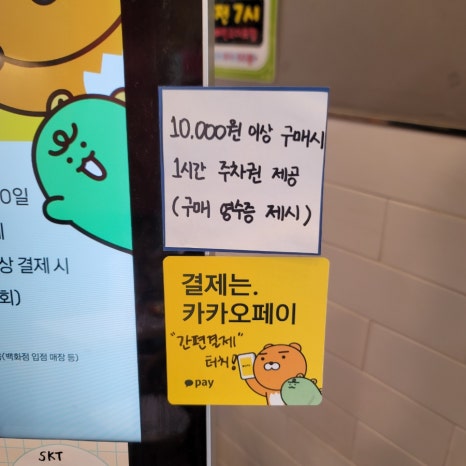 전 7시
0일
상 결제 시
회)
(백화점 입점 매장 등)
SKT
10.000원 이상 구매시
1시간 주차권 제공
(구매 영수증 제시)
결제는.
카카오페이
"간편결제"
터치!
pay